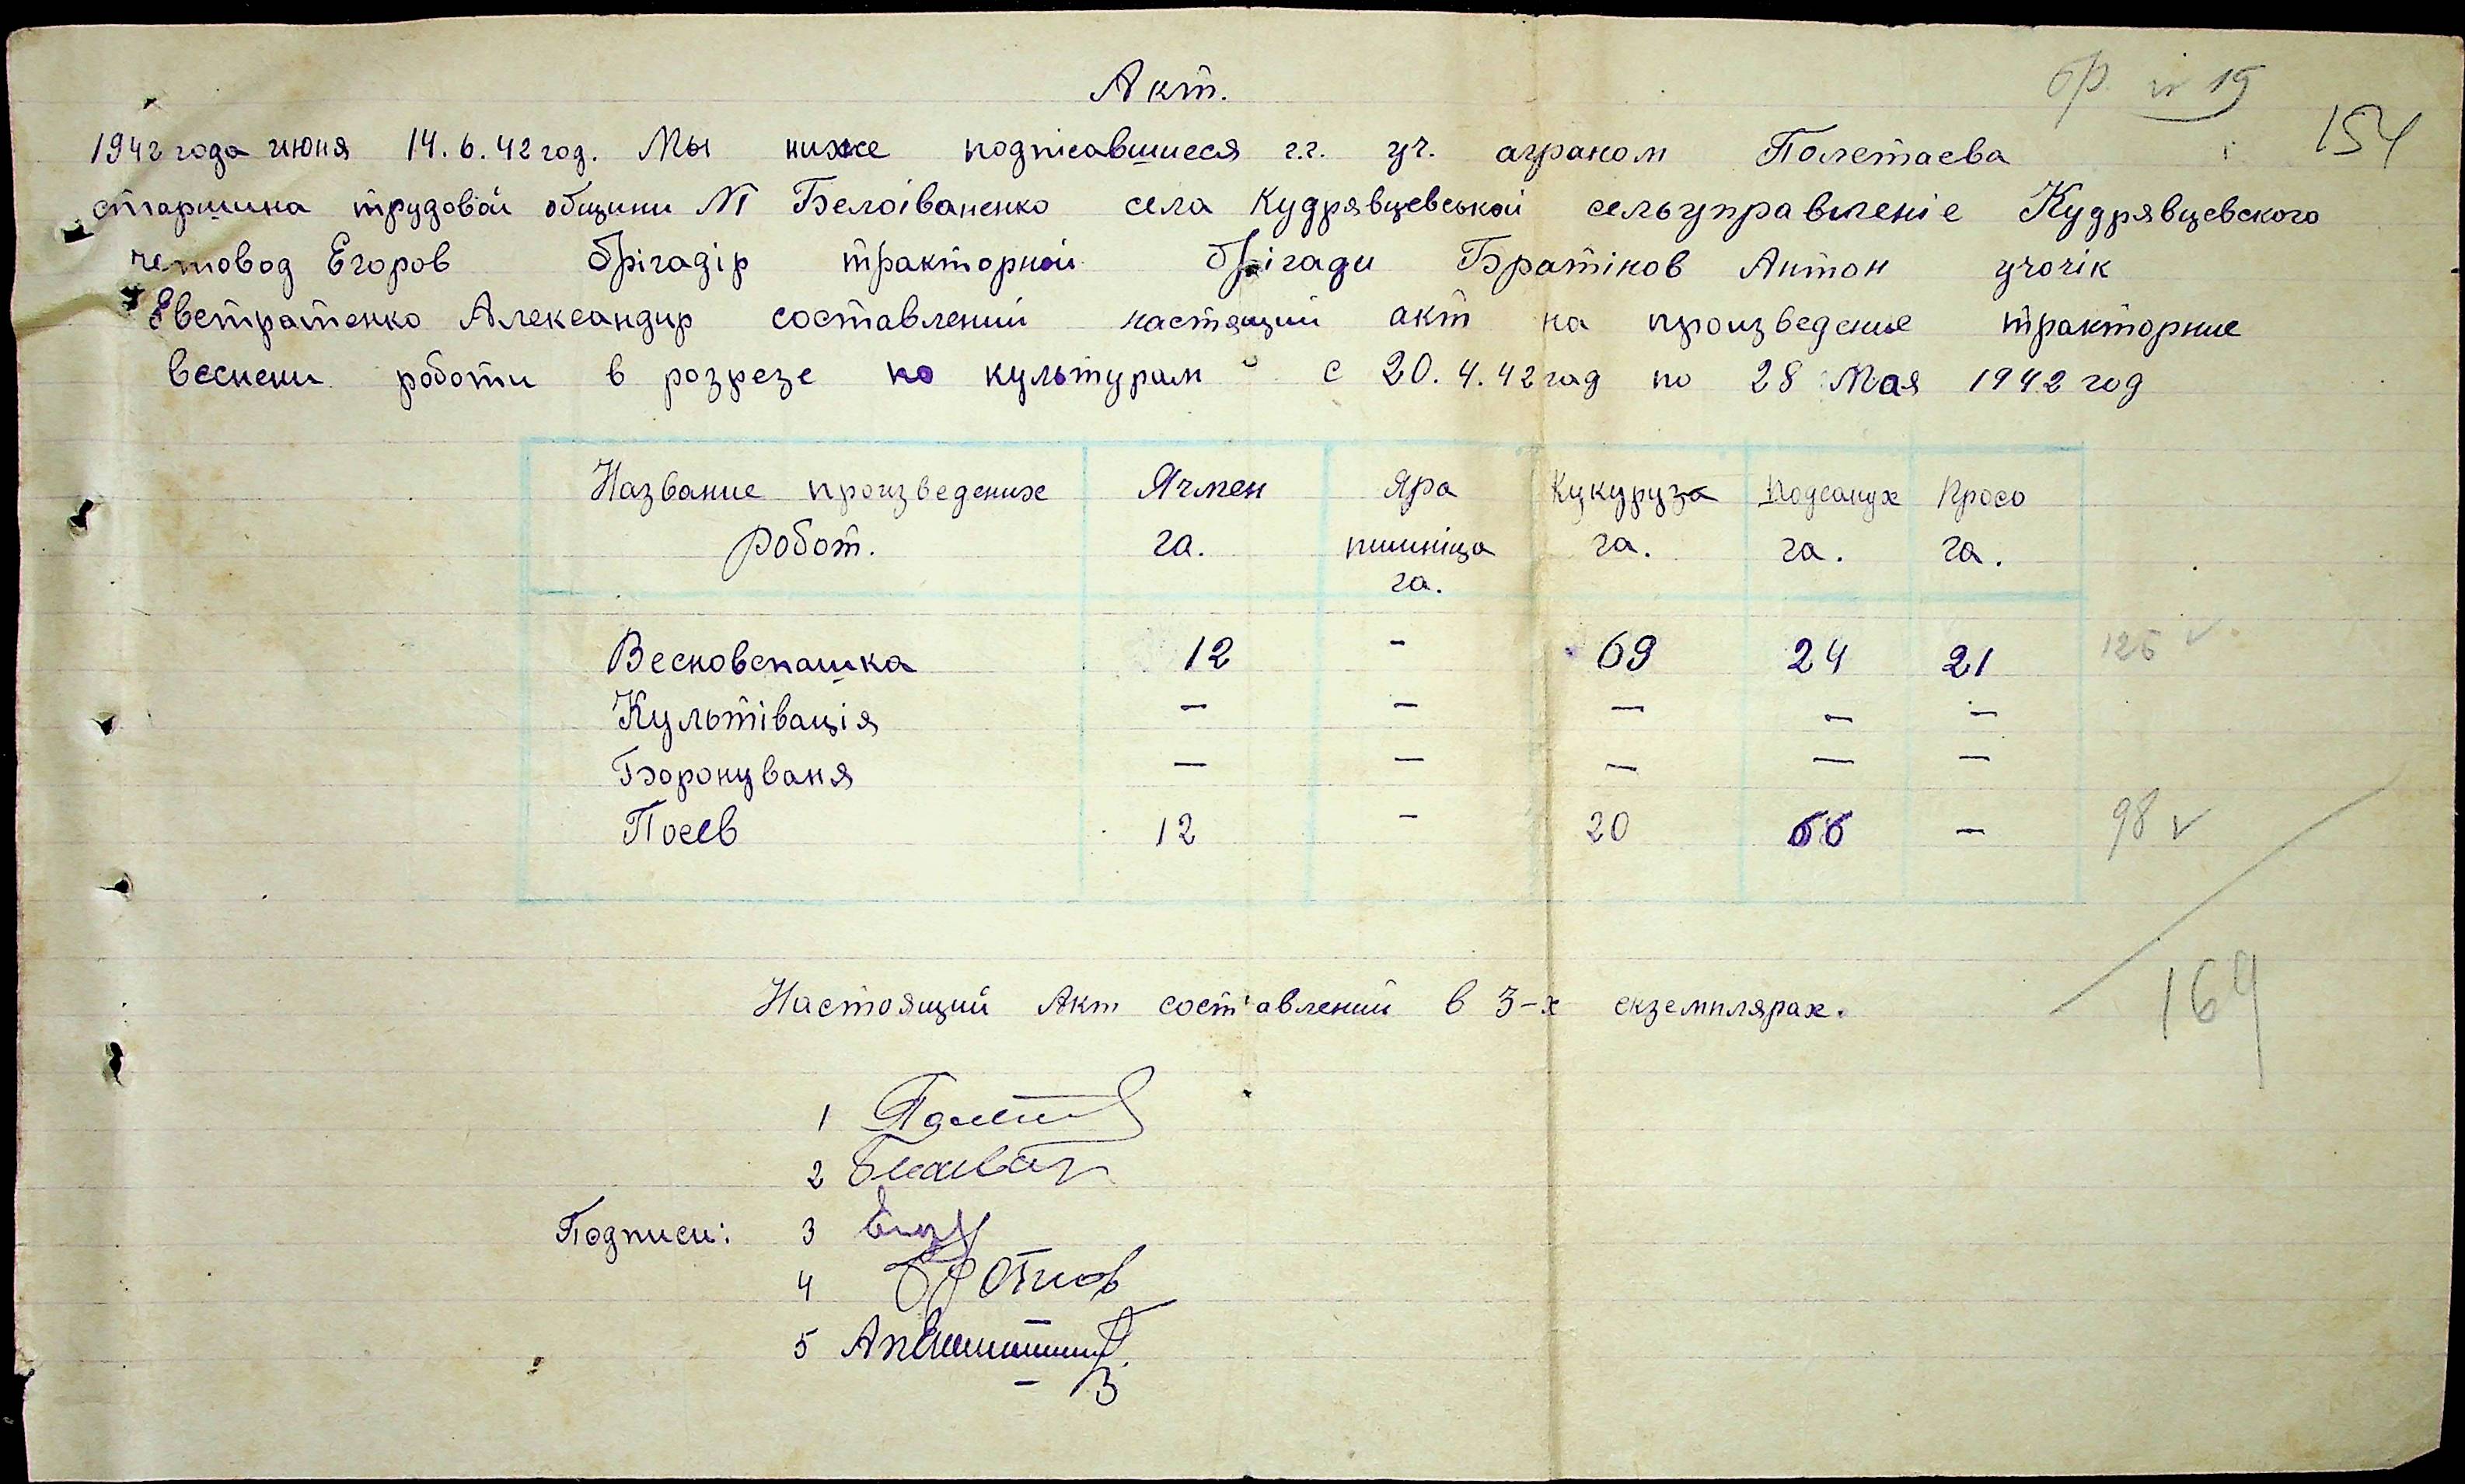 Акт.
бр. № 15
154
1942 года июня 14.6.42 год. Мы ниже подпісавшиеся г.г. уч. аграном Полетаева
старшина трудовой общини №1 Белоіваненко села Кудрявцевськой сельуправленіе Кудрявцевского
четовод Егоров брігадір тракторной брігади Братіков Антон учочік
Евстратенко Александир составлений настящий акт на произведение тракторние
веснени роботи в розрезе по культурам с 20.4.42 год по 28 Мая 1942 год
Название произведених Ячмен Яра Кукуруза Подсонух Просо
робот. га. пшініца га. га. га.
га.
Весновспашка 12 - 69 24 21 126 ✓
Культівація — — — — —
Боронуваня — — — — —
Посев 12 - 20 66 — 98 ✓
169
Настоящий Акт составлений в 3-х екземплярах.
1
2
Подписи: 3
4
5